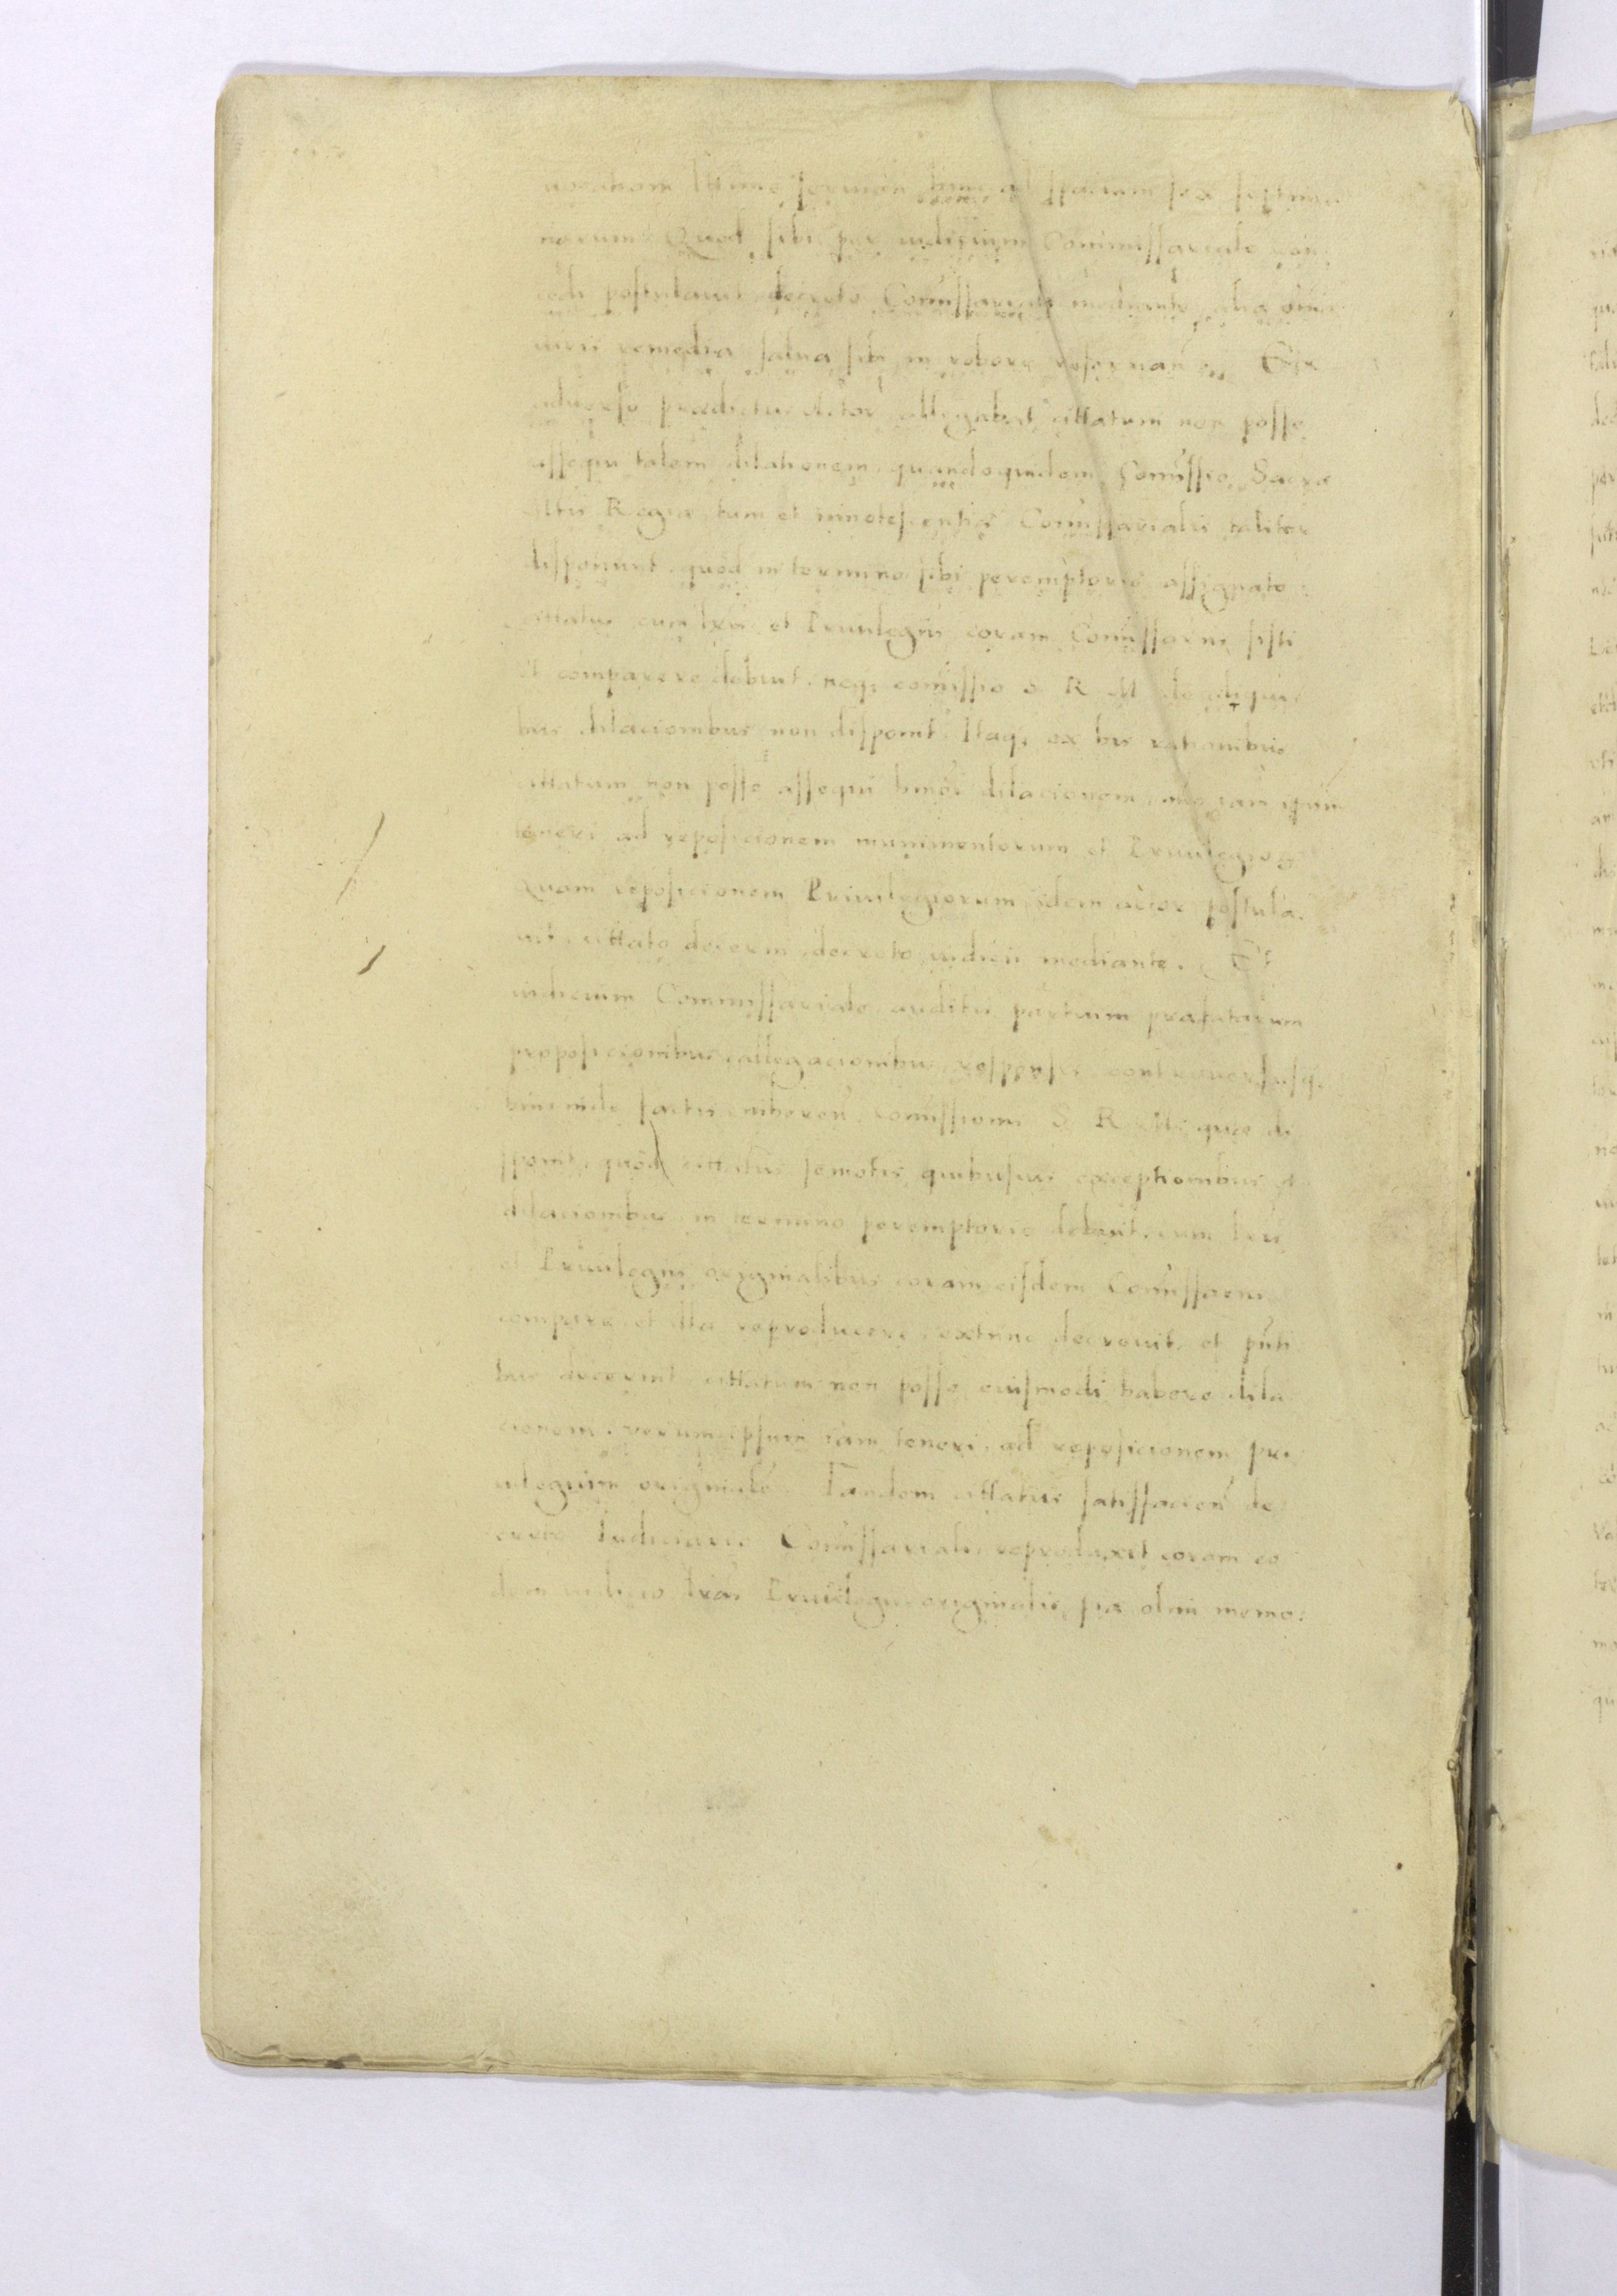 spacium sex septima
narum Quod sibi per iudicium Commissariale con
cedi postulauit decreto Comissariali mediante alia omnia
iuris remedia salua sibi in robore reseruan Ex
aduerso praedictus Actor allegabat cittatum non posse
assequi talem dilationem quandoquidem Comissio Sacrae
Mtis Regiae tum et innotescentiae Comissarialis taliter
disponunt quod in termino sibi peremptorio assignato
cittatus cum lris et Priuilegiis coram Comissariis sisti
et comparere debeat neqz comissio S R M de aliqui
bus dilacionibus non disponit Itaqz ex his rationibus
cittatum non posse assequi hmoi dilacionem imo iam ipsum
teneri ad reposicionem munimentorum et Priuilegior
Quam reposicionem Priuilegiorum idem actor postula
uit cittato decerni decreto iudicii mediante. Et
iudicium Commissariale auditis partium praefatarum
proposicionibus allegacionibus responsis controuersiisqz
hinc inde factis inhaeren comissioni S R Mtis quae di
sponit quod cittatus semotis quibusuis exceptionibus et
dilacionibus in termino peremptorio debeat cum lris
et Priuilegiis originalibus coram eisdem Comissariis
comparere et illa reproducere extunc decreuit et pnti
bus decernit cittatum non posse euismodi habere dila
cionem verum ipsum iam teneri ad reposicionem pri
uilegiorum originaliu Tandem cittatus satisfacien de
creto Iudiciario Comissariali reproduxit coram eo
dem iudicio lras Priuilegii originalis piae olim memo: